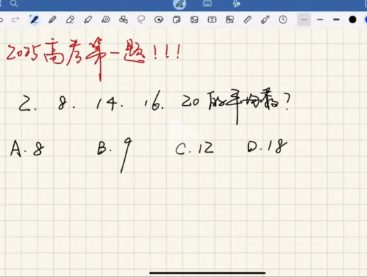 2025高考第一题!!!
2. 8. 14. 16. 20 的平均数?
A. 8 B. 9 C. 12 D. 18